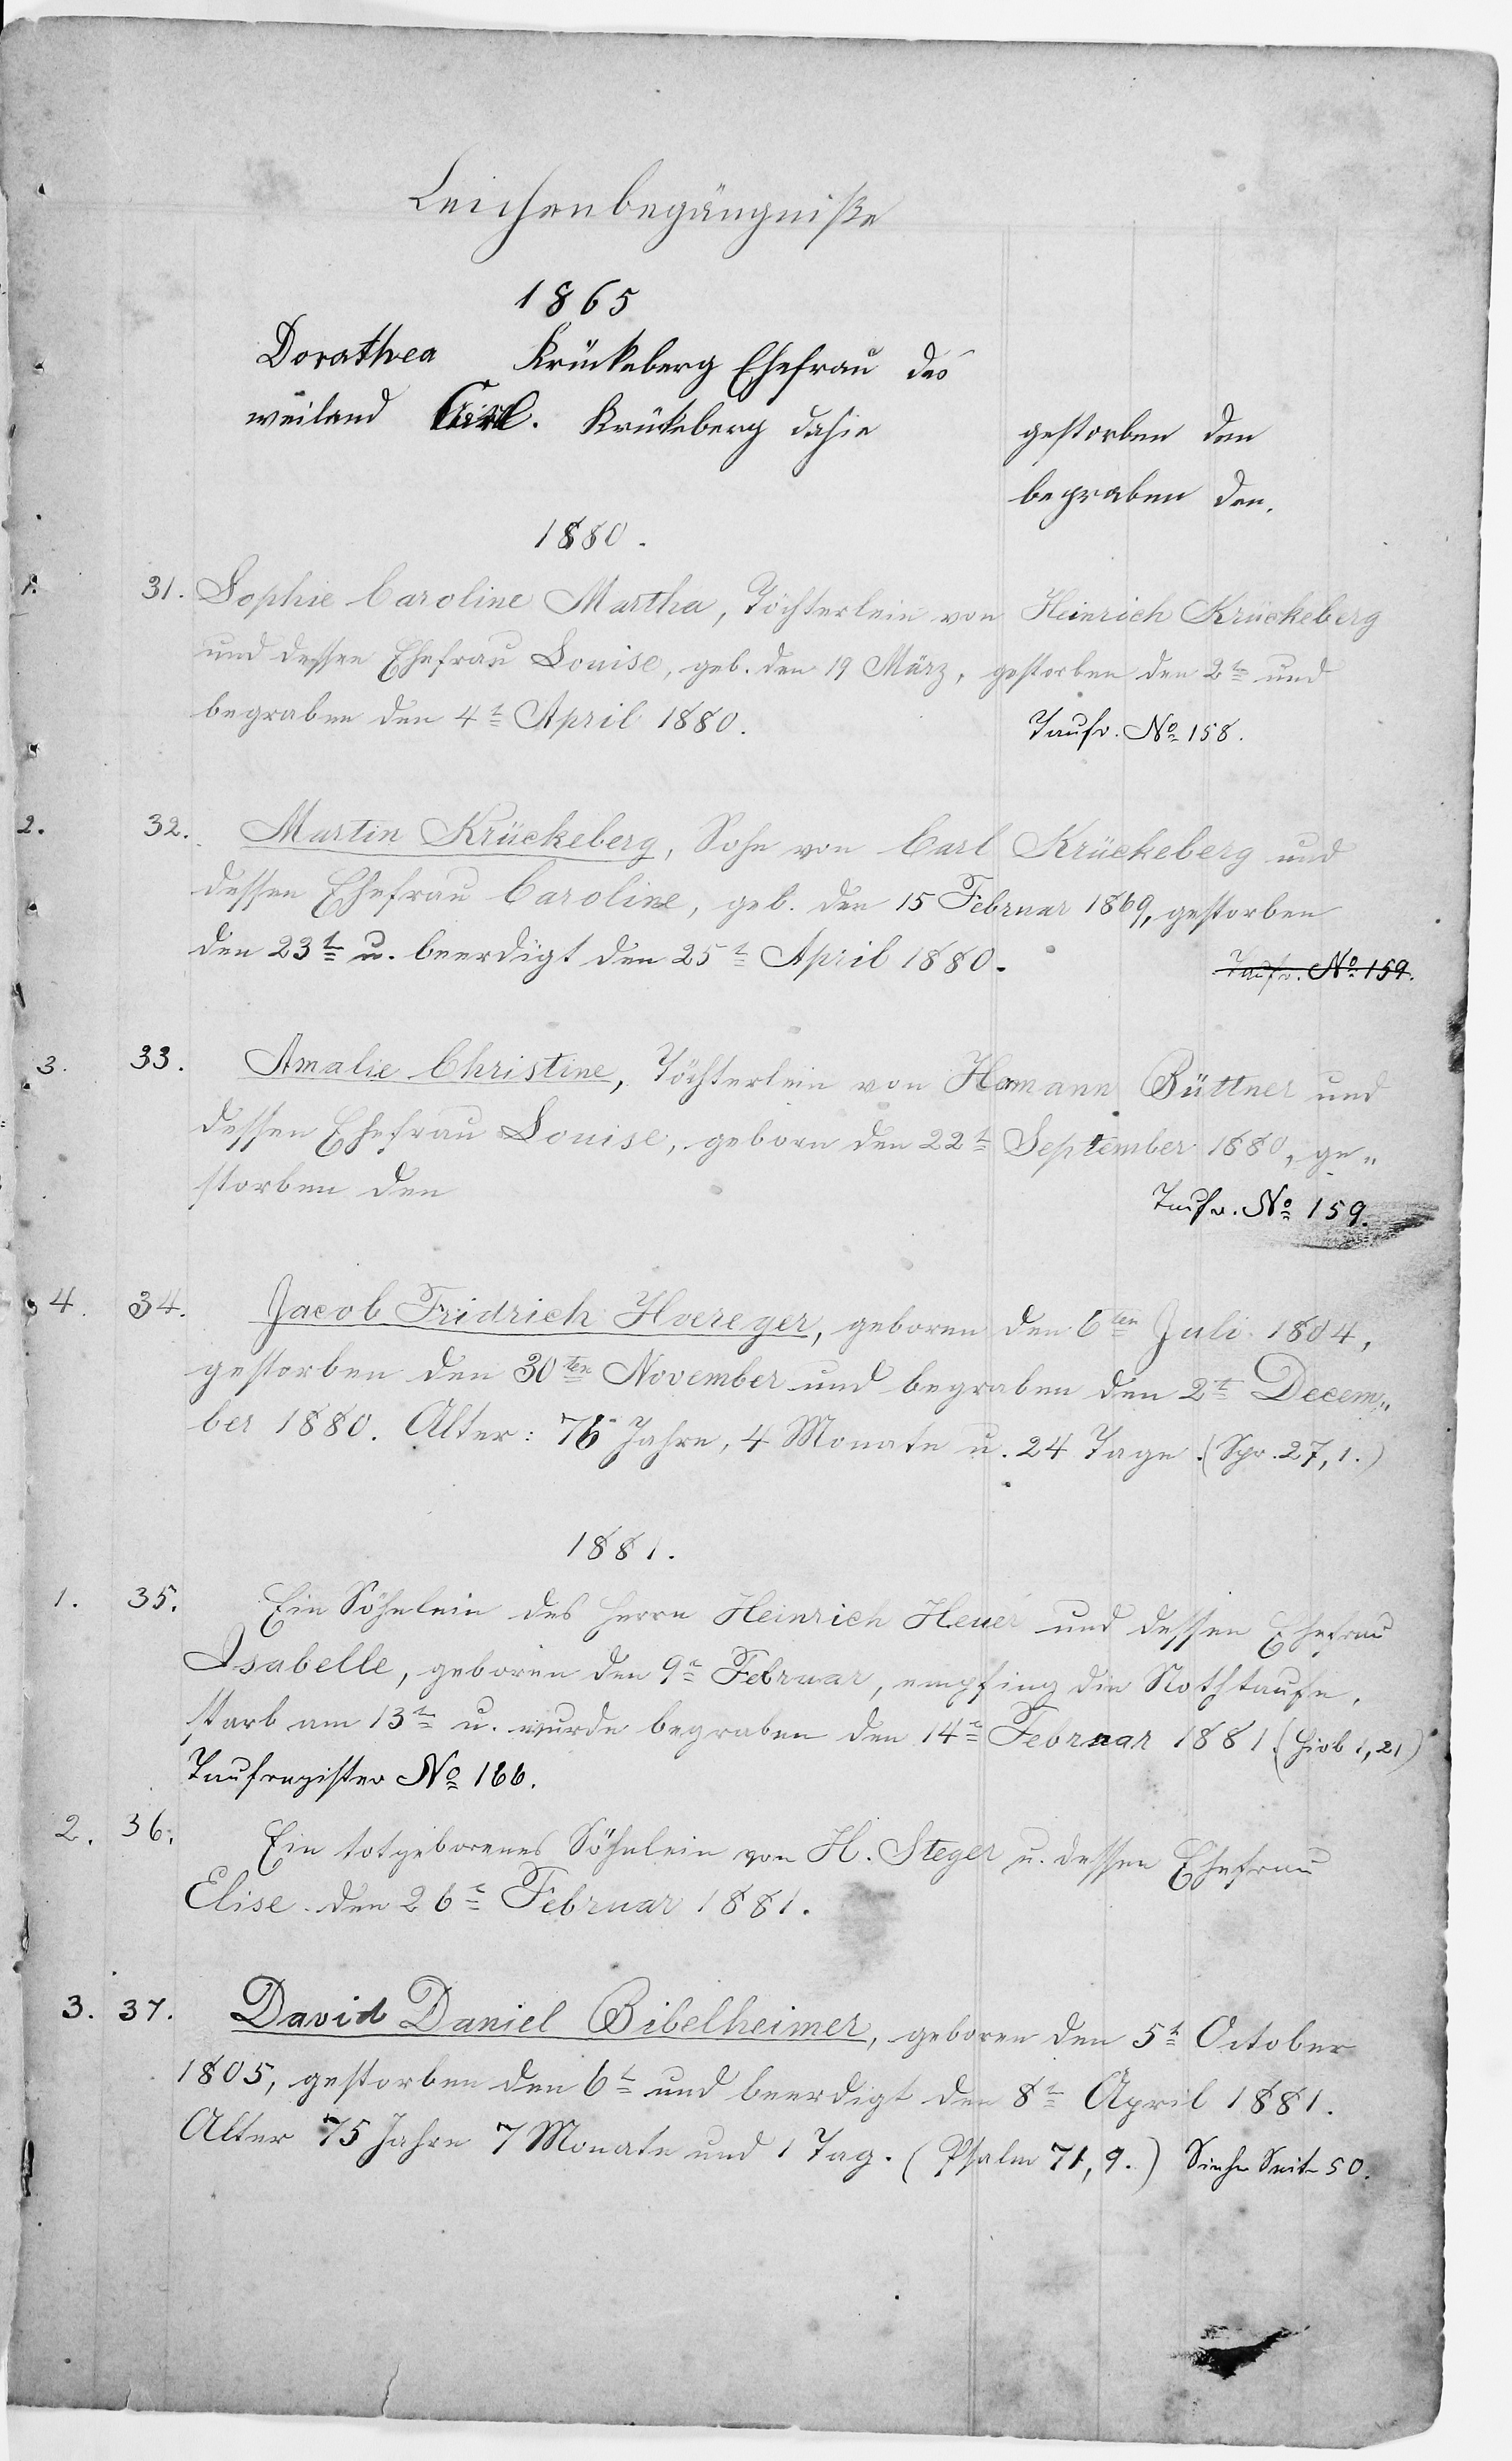 Leichenbegängniße
1865
Dorathea Krückeberg Ehefrau des
weiland Carl. Krückeberg dahie
gestorben den
begraben den.
1880.
1. 31. Sophie Caroline Martha, Töchterlein von Heinrich Krückeberg
und dessen Ehefrau Louise, geb. den 19 März, gestorben den 2t und
begraben den 4t April 1880. Taufr. No 158.
2. 32. Martin Krückeberg, Sohn von Carl Krückeberg und
dessen Ehefrau Caroline, geb. den 15 Februar 1869, gestorben
den 23t u. beerdigt den 25t April 1880. Taufr. No 159.
3. 33. Amalie Christine, Töchterlein von Hermann Büttner und
dessen Ehefrau Louise, geborn den 22t September 1880, ge„
storben den Taufr. No 159.
4. 34. Jacob Fridrich, geboren den 6ten Juli 1804,
gestorben den 30ten November und begraben den 2t Decem„
ber 1880. Alter: 76 Jahre, 4 Monate u. 24 Tage. (Spr. 27, 1.)
1881.
1. 35. Ein Söhnlein des Herrn Heinrich Heuer und dessen Ehefrau
Isabelle, geboren den 9t Februar, empfing die Nothtaufe,
starb am 13t u. wurde begraben den 14t Februar 1881. (Hiob 1, 21)
Taufregister No 166.
2. 36. Ein totgeborenes Söhnlein von H. Steger u. dessen Ehefrau
Elise. den 26t Februar 1881.
3. 37. David Daniel Bibelheimer, geboren den 5t October
1805, gestorben den 6t und beerdigt den 8t April 1881.
Alter 75 Jahre 7 Monate und 1 Tag. (Psalm 71, 9.) Siehe Seite 50.